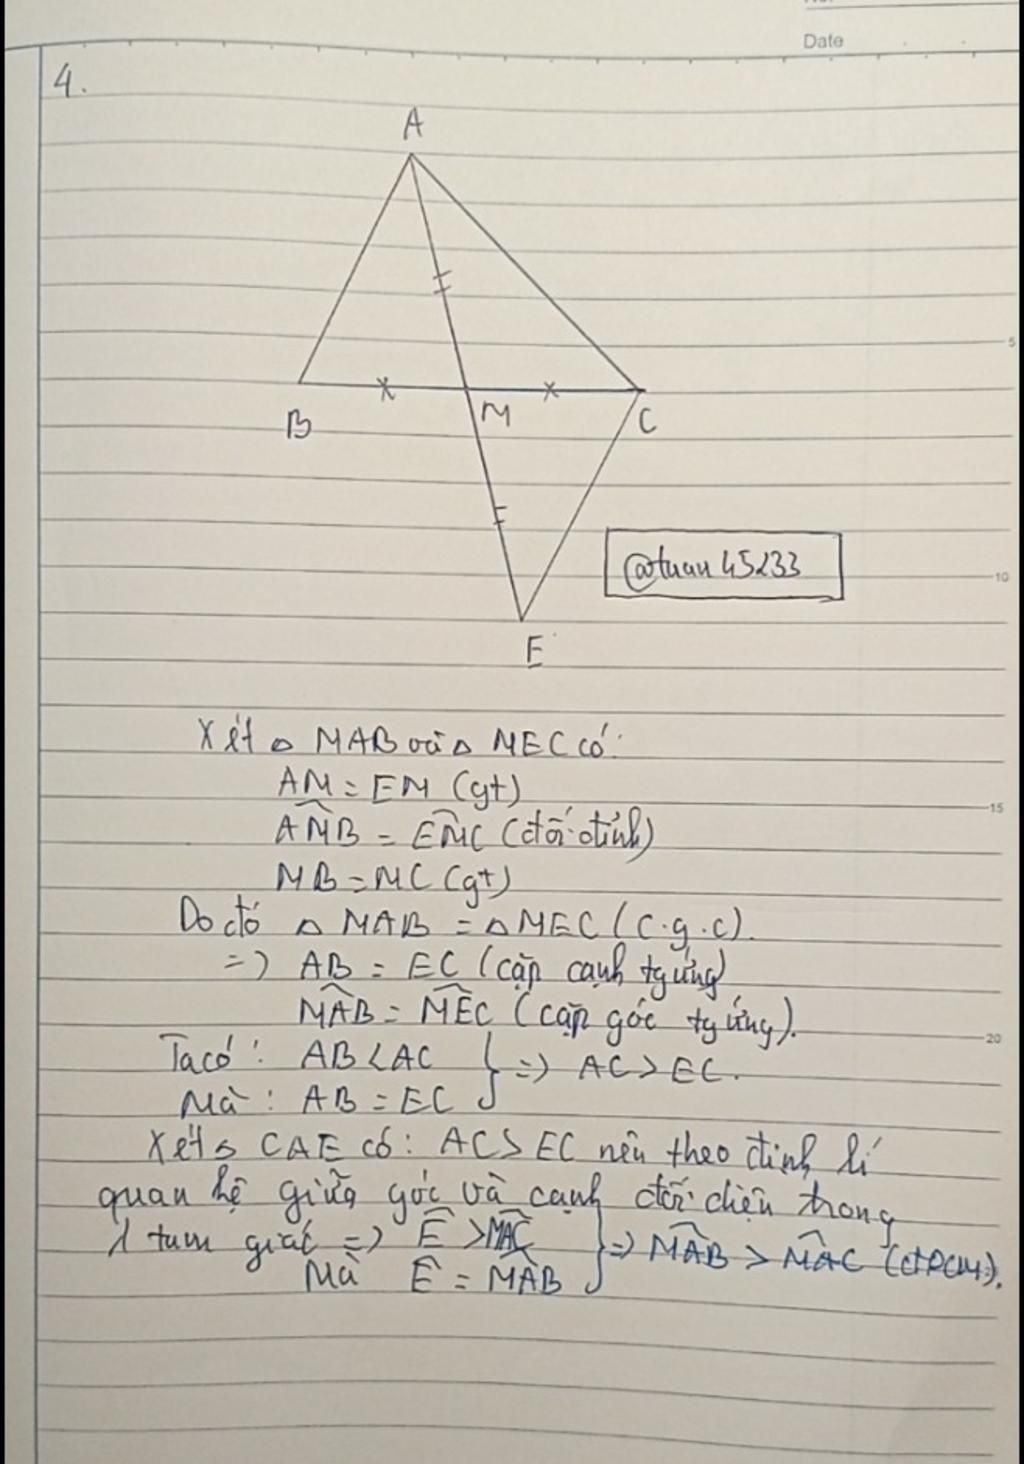 Date
4.
A
B
M
C
5
@tuan45233
10
E
Xét △ MAB và △ MEC có:
AM = EM (gt)
15
AM̂B = EM̂C (đối đỉnh)
MB = MC (gt)
Do đó △ MAB = △ MEC (c.g.c).
=> AB = EC (cặp cạnh tg ứng)
MÂB = MÊC (cặp góc tg ứng).
20
Ta có: AB < AC } => AC > EC.
Mà: AB = EC
Xét △ CAE có: AC > EC nên theo định lí
quan hệ giữa góc và cạnh đối diện trong
1 tam giác => Ê > MÂC } => MÂB > MÂC (đPCM).
Mà Ê = MÂB